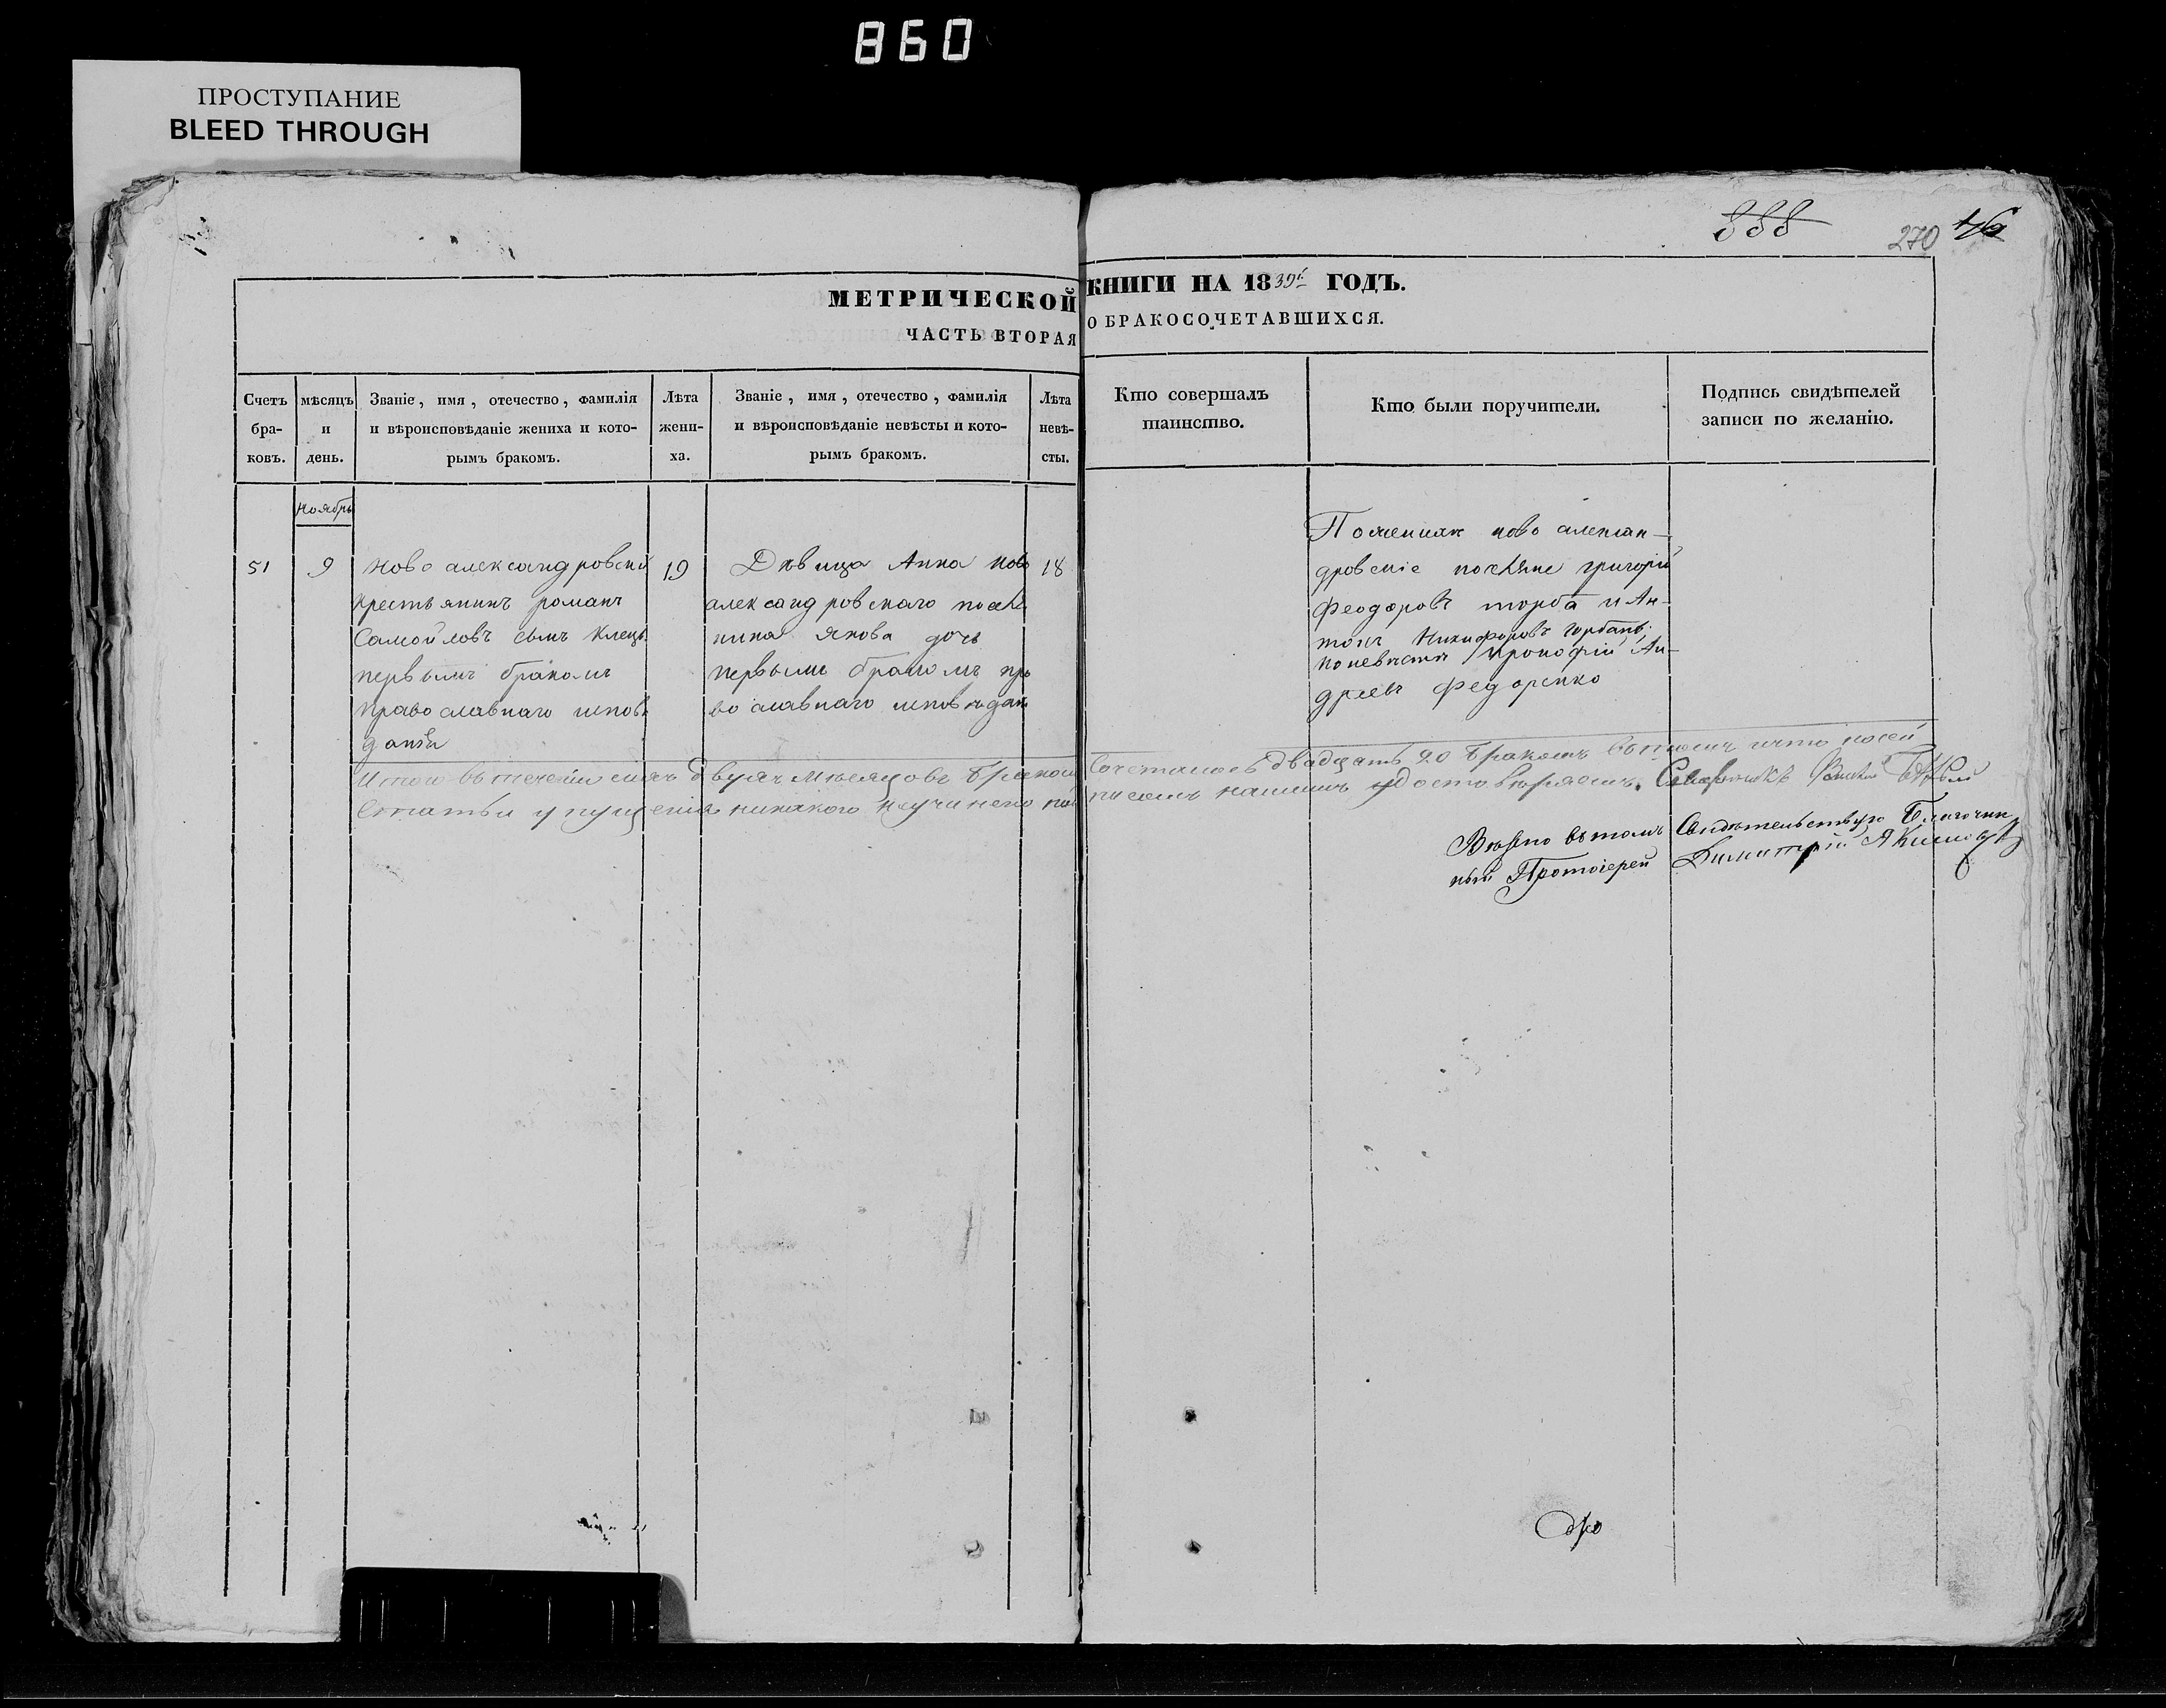 860
ПРОСТУПАНИЕ
BLEED THROUGH
888
270
МЕТРИЧЕСКОЙ КНИГИ НА 1839 ГОДЪ.
ЧАСТЬ ВТОРАЯ О БРАКОСОЧЕТАВШИХСЯ.
Счетъ бра- ковъ.
мѣсяцъ и день.
Званіе, имя, отечество, фамилія
и вѣроисповѣданіе жениха и кото-
рымъ бракомъ.
Лѣта жени- ха.
Званіе, имя, отечество, фамилія
и вѣроисповѣданіе невѣсты и кото-
рымъ бракомъ.
Лѣта невѣ- сты.
Кто совершалъ
таинство.
Кто были поручители.
Подпись свидѣтелей
записи по желанію.
Ноябрь
51
9
Ново александровскій
крестьянинъ романъ
Самойловъ сынъ Клецъ
первымъ бракомъ
православнаго испов
данія
19
Дѣвица Анна ново
александровскаго посѣ
нина якова дочь
первымъ бракомъ пра
во славнаго исповѣдан
18
По женихѣ ново алексан-
дровскіе посѣляне григорій
Феодоровъ торба и Ан-
тонъ Никифоровъ горбань,
по невѣстѣ прокофій Ан-
дреевъ Федоренко
Итого въ теченіи сихъ двухъ мѣсяцовъ бракомъ Сочеталось двадцать 20 браковъ въ томъ и что по сей
Статьи упущенія никакого неучинено писомъ нашимъ удостовѣряемъ. Священникъ
Вѣрно въ томъ Свидѣтельствую Благочин
ный Протоіерей Димитрій Акимовъ